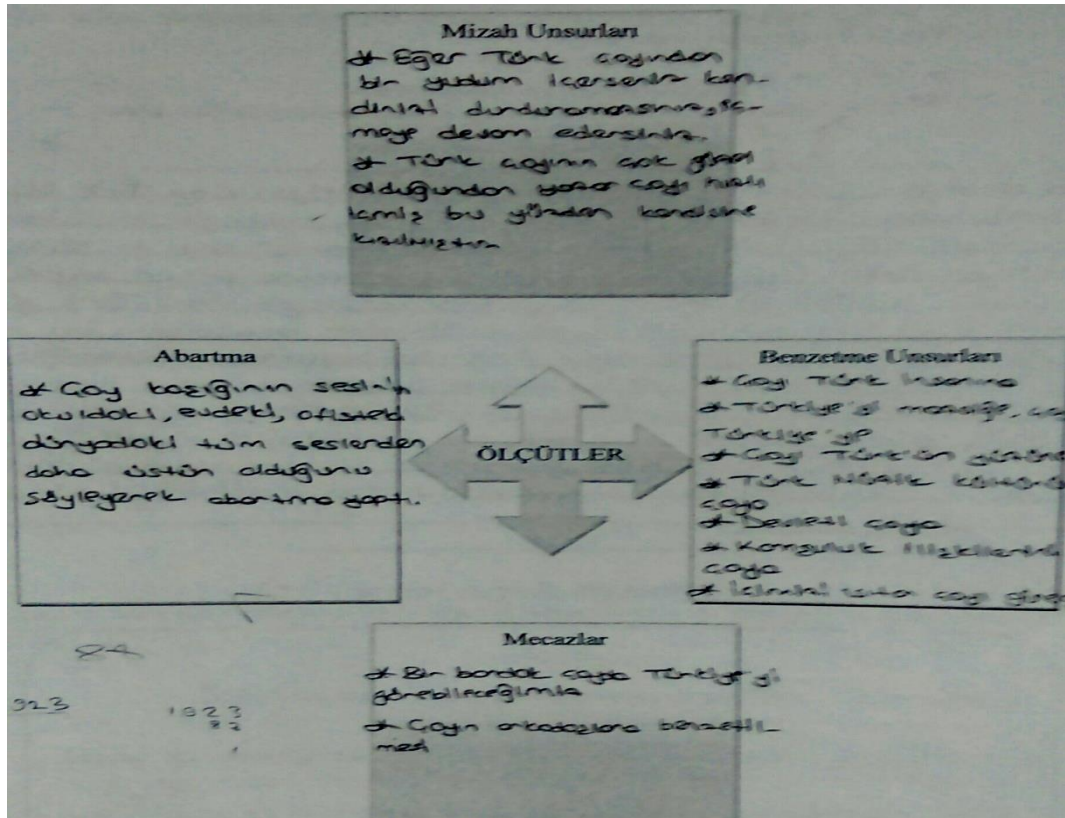 Mizah Unsurları
* Eğer Türk çayından
bir yudum içerseniz ken-
dinizi durduramazsınız, iç-
meye devam edersiniz.
* Türk çayının çok güzel
olduğundan yazar çayı hızlı
içmiş bu yüzden kendisine
kızılmıştır.
Abartma
* Çay kaşığının sesinin
okuldaki, evdeki, ofisteki
dünyadaki tüm seslerden
daha üstün olduğunu
söyleyerek abartma yaptı.
ÖLÇÜTLER
Benzetme Unsurları
* Çayı Türk insanına
* Türkiye'yi
Türkiye'ye
* Çayı Türk'ün
* Türk
çaya
* Devleti çaya
* Komşuluk ilişkilerini
çaya
* İçimizi ısıtan çayı
Mecazlar
* Bir bardak çayda Türkiye'yi
görebileceğimiz
* Çayın arkadaşlara benzetil-
mesi
923
1923